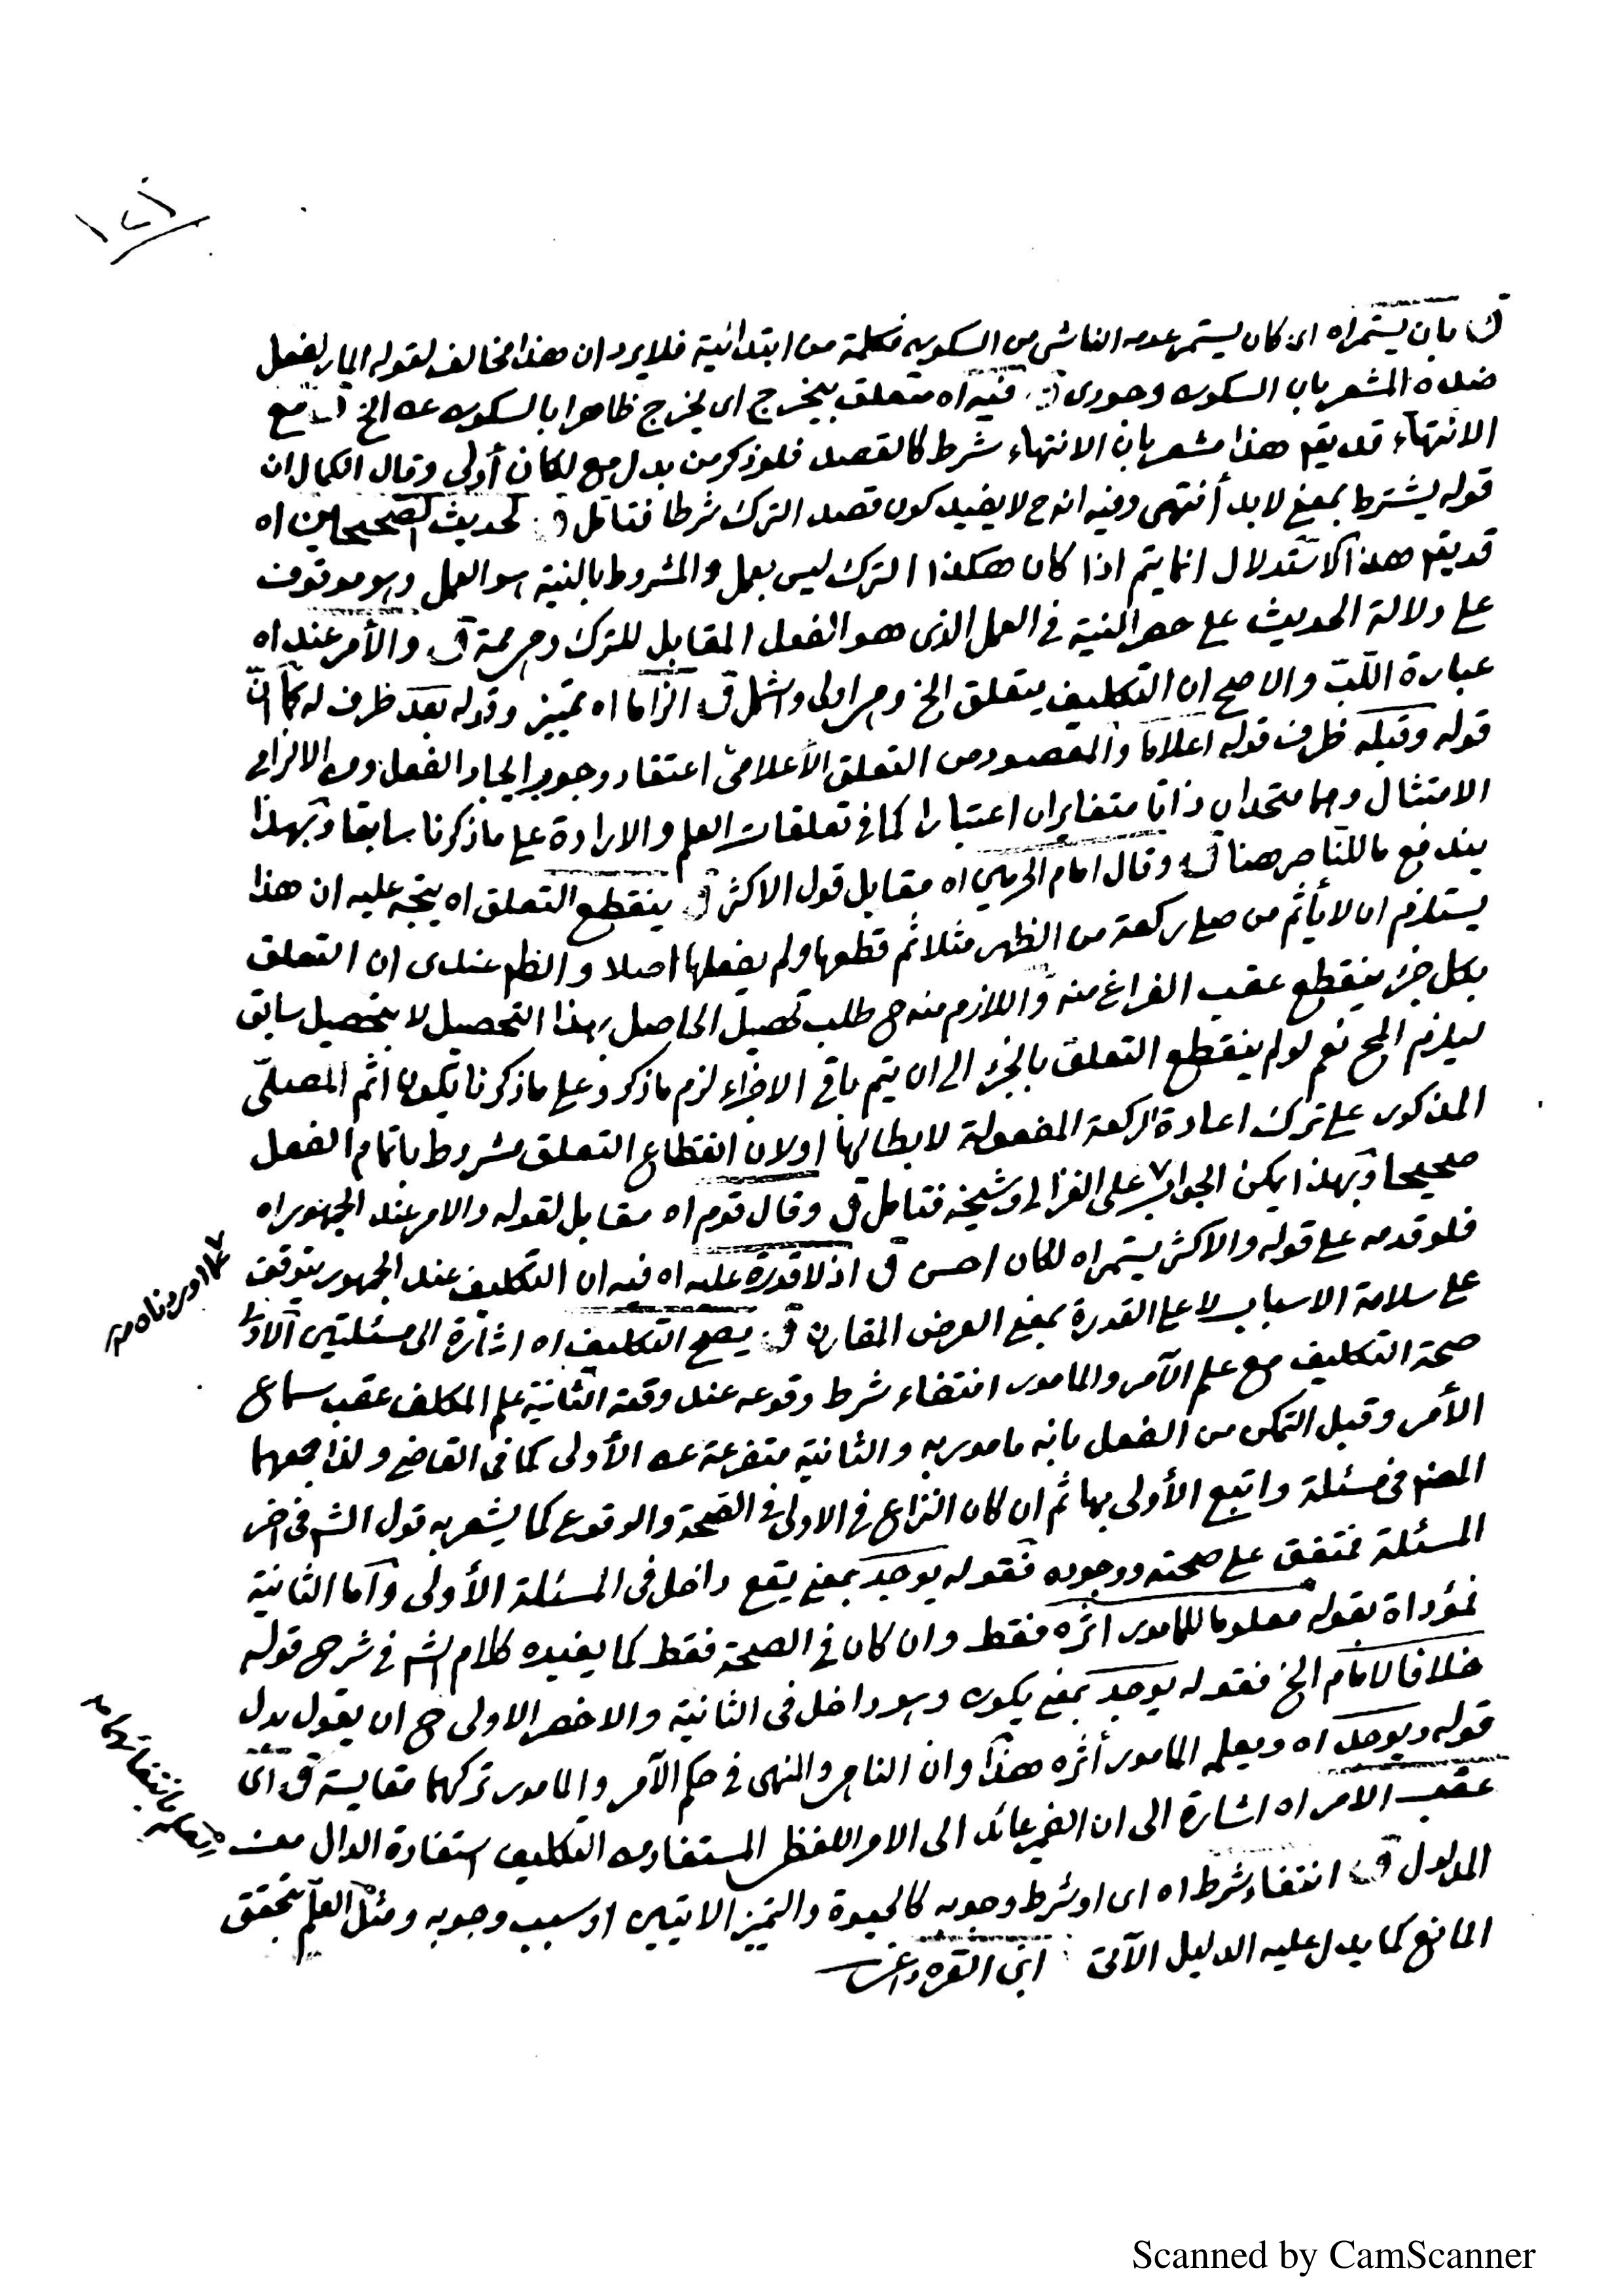 ١٢١
ق بان يستمر اه اى كان يستمر عدمه الناشى من السكون فكلمة من ابتدائية فلا يرد ان هذا مخالف لقوله المار لفعل
ضده المشعر بان السكون وجودى ق فيه اه متعلق بيخرج اى يخرج ظاهرا بالسكون عنه الخ ق مع
الانتهاء قد يقم هذا مشعر بان الانتهاء شرط كالقصد فلو ذكر من بدل مع لكان أولى وقال الكمال ان
قوله يشترط بمعنى لابد أنتهى وفيه انه ح لا يفيد كون قصد الترك شرطا فتامل ق لحديث الصحيحين اه
قد يقم هذا الاستدلال انما يتم اذا كان هكذا الترك ليس بعمل والمشروط بالنية هو العمل وهو موقوف
على دلالة الحديث على حصر النية فى العمل الذى هو الفعل المقابل للترك وهى ممة ق والأمر عند اه
عبارة اللّبّ والاصح ان التكليف يتعلق الخ وهى اولى واشمل ق الزاما اه تمييز وقوله بعد ظرف له كما انّ
قوله وقبله ظرف قوله اعلاما والمقصود من التعلق الأعلامىّ اعتقاد وجوب ايجاد الفعل ومن الالزامى
الامتثال وهما متحدان ذاتا متغايران اعتبارا كما فى تعلقات العلم والارادة على ما ذكرنا سابقا وبهذا
يندفع ما للناصر هنا ق وقال امام الحرمين اه مقابل قول الاكثر ق ينقطع التعلق اه يتجه عليه ان هذا
يستلزم ان لا يأثم من صلى ركعة من الظهر مثلا ثم قطعها ولم يفعلها اصلا والظم عندى ان التعلق
بكل جزء ينقطع عقب الفراغ منه واللازم منه ح طلب تحصيل الحاصل بهذا التحصيل لا بتحصيل سابق
ليلزم المح نعم لو لم ينقطع التعلق بالجزء الى ان يتم باقى الاجزاء لزم ما ذكر وعلى ما ذكرنا يكون اثم المصلّى
المذكور على ترك اعادة الركعة المفعولة لابطالها او لان انقطاع التعلق مشروط باتمام الفعل
صحيحا وبهذا يمكن الجواب على الغزالى وشيخه فتامل ق وقال قوم اه مقابل لقوله والامر عند الجمهور اه
فلو قدمه على قوله والاكثر يستمر اه لكان احسن ق اذ لا قدرة عليه اه فيه ان التكليف عند الجمهور يتوقف
على سلامة الاسباب لا على القدرة بمعنى العرض المقارن ق يصح التكليف اه اشارة الى مسئلتين الاولى
صحة التكليف مع علم الآمر والمامور انتفاء شرط وقوعه عند وقته الثانية علم المكلف عقب سماع
الأمر وقبل التمكن من الفعل بانه مامور به والثانية متفرعة عن الأولى كما فى القاضى ولذا جمعهما
المصنم فى مسئلة واتبع الأولى بها ثم ان كان النزاع فى الاولى فى الصحة والوقوع كما يشعر به قول الشم فى اخر
المسئلة فمتفق على صحته ووجوده فقوله يوجد بمعنى يقع داخل فى المسئلة الأولى وأما الثانية
فمؤداة بقوله معلوما للمامور اثره فقط وان كان فى الصحة فقط كما يفيده كلام الشم فى شرح قوله
خلافا لامام الخ فقوله يوجد بمعنى يكون وهو داخل فى الثانية والاخصر الاولى ح ان يقول بدل
قوله ويوجد اه ويعلم المامور أثره هذا وان الناهى والمنهى فى حكم الآمر والمامور تركهما مقايسة ق اى
عقب الامر اه اشارة الى ان الضمير عائد الى الامر اللفظى المستفاد من التكليف استفادة الدال من
المدلول ق انتفاء شرط اه اى او شرط وجوبه كالحيوة والتميز الاتيين او سبب وجوبه ومثل العلم بتحقق
المانع كما يدل عليه الدليل الآتى ابن القره داغى